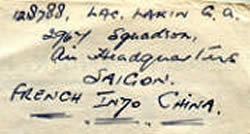 128788. LAC. LAKIN G. A.
2967 Squadron,
Air Headquarters
SAIGON.
FRENCH INDO CHINA.